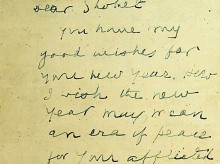 Dear Shohet
you have my
good wishes for
your new year. How
I wish the new
Year may mean
an era of peace
for your afflicted